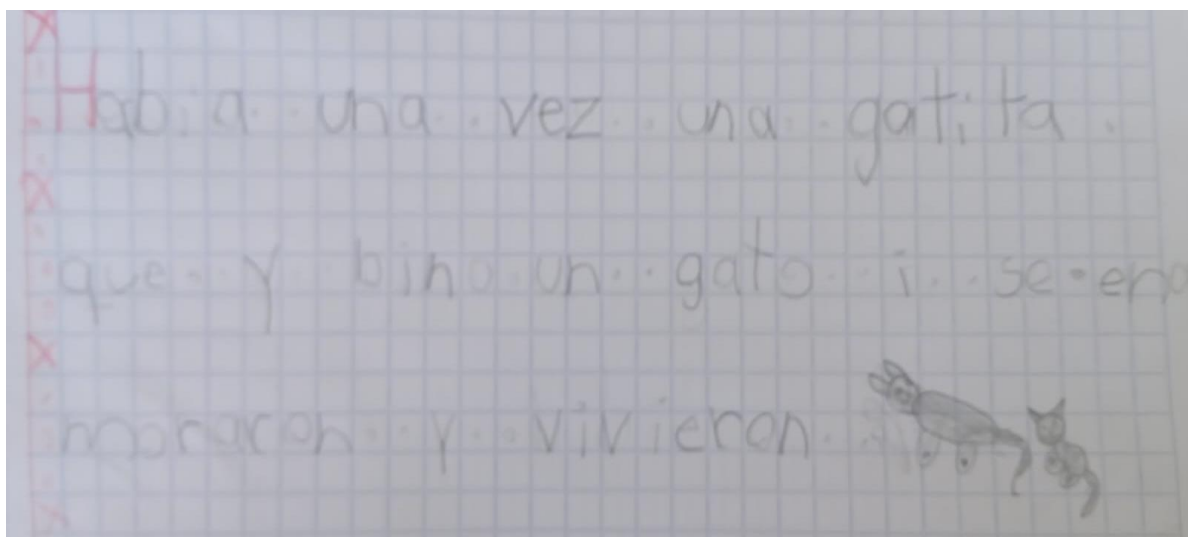 Habia una vez una gatita
que y bino un gato i se ena
moraron y vivieron